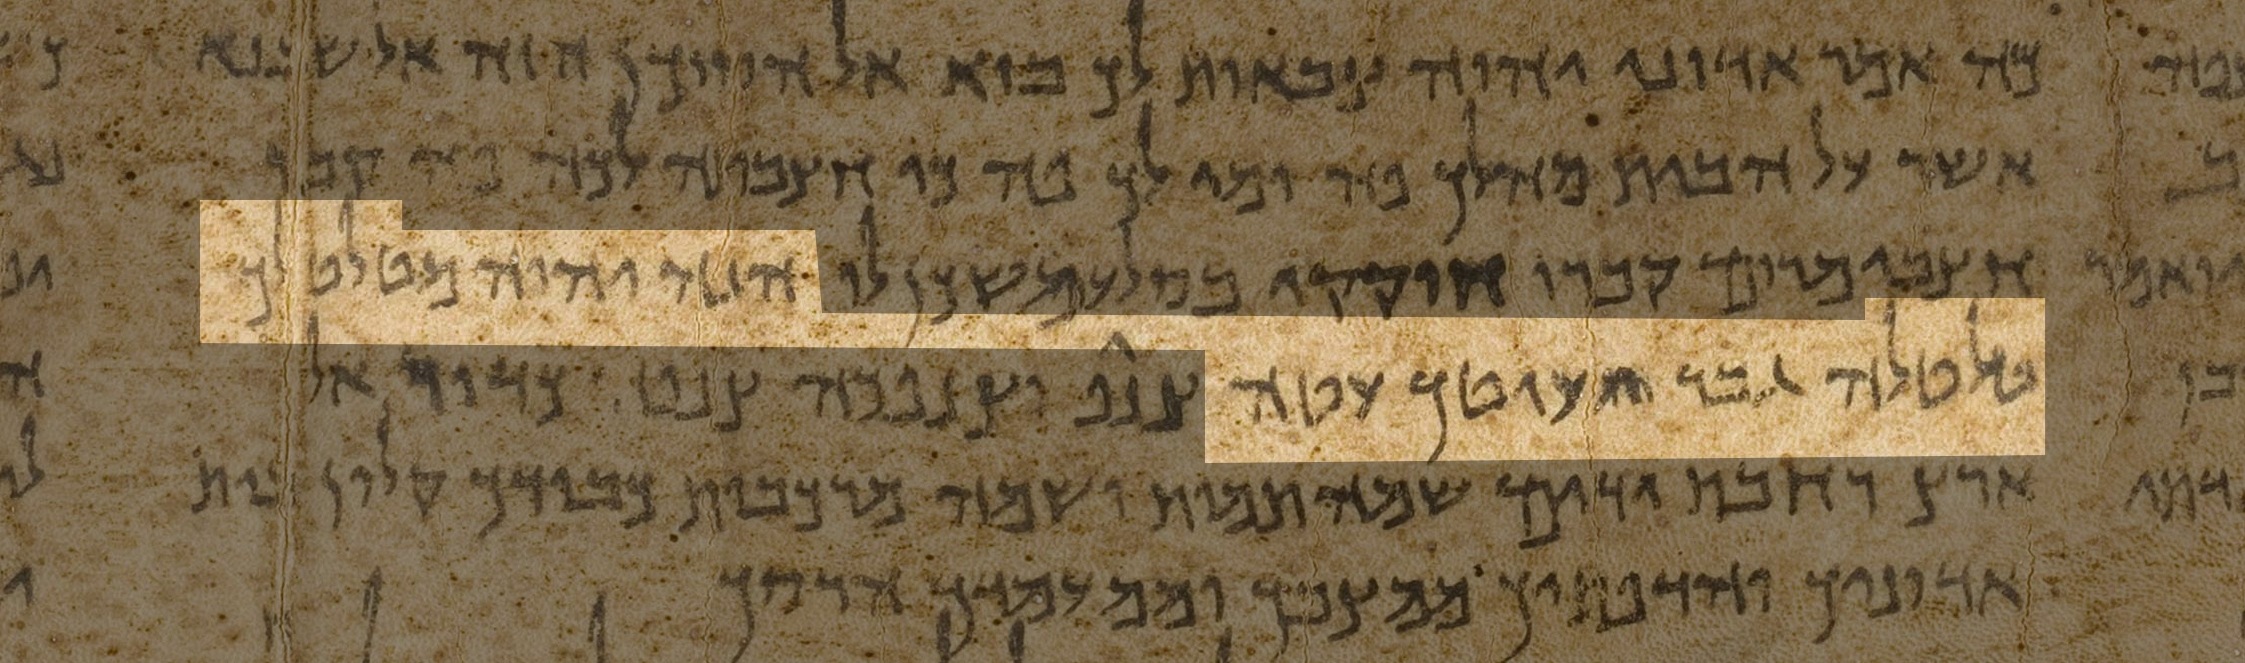 כה אמר אדוני יהוה צבאות לך בוא אל הסוכן הזה אל שבנא
אשר על הבית מה לך פה ומי לך פה כי חצבתה לכה פה קבר
חצבי מרום קברו חוקקי בסלע משכן לו הנה יהוה מטלטלך
טלטלה גבר ועוטך עטה צנוף וצנפכה כדור אל
ארץ רחבת ידים שמה תמות ושמה מרכבות כבודך קלון בית
אדוניך והדפתיך ממצבך וממעמדך אהרסך